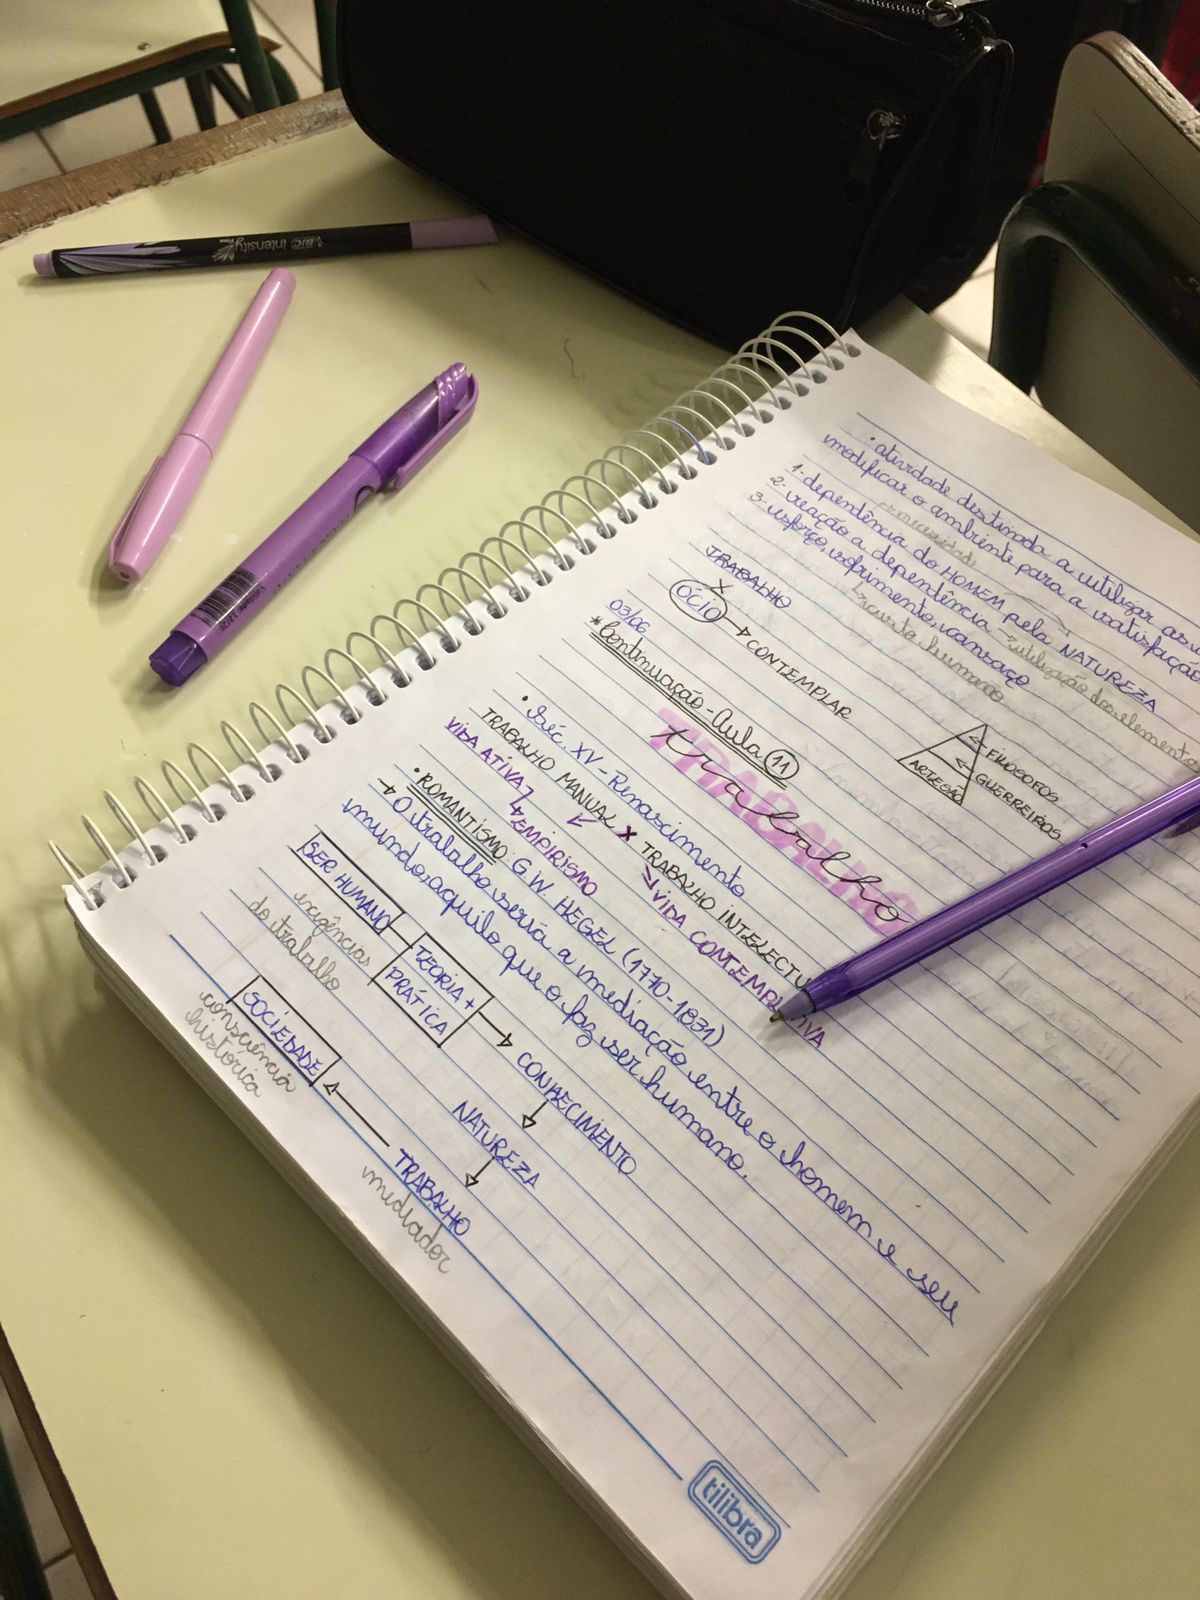 • atividade destinada a utilizar as
modificar o ambiente para a satisfação
→ necessidade
1- dependência do HOMEM pela NATUREZA
2- reação a dependência → utilização dos elementos
3- esforço, sofrimento, cansaço
↳ custa humano
TRABALHO
X
ÓCIO → CONTEMPLAR
FILÓSOFOS
GUERREIROS
ARTESÃO
03/06
* Continuação - Aula 11
TRABALHO
trabalho
• Séc. XV - Renascimento
TRABALHO MANUAL X TRABALHO INTELECTU
VIDA ATIVA
↳ EMPIRISMO
VIDA CONTEMPLATIVA
• ROMANTISMO: G.W HEGEL (1770-1831)
→ O trabalho seria a mediação entre o homem e seu
mundo; aquilo que o faz ser humano.
SER HUMANO
exigências
do trabalho
TEORIA +
PRÁTICA
CONHECIMENTO
NATUREZA
TRABALHO
mediador
SOCIEDADE
consciência
histórica
tilibra
BIC intensity